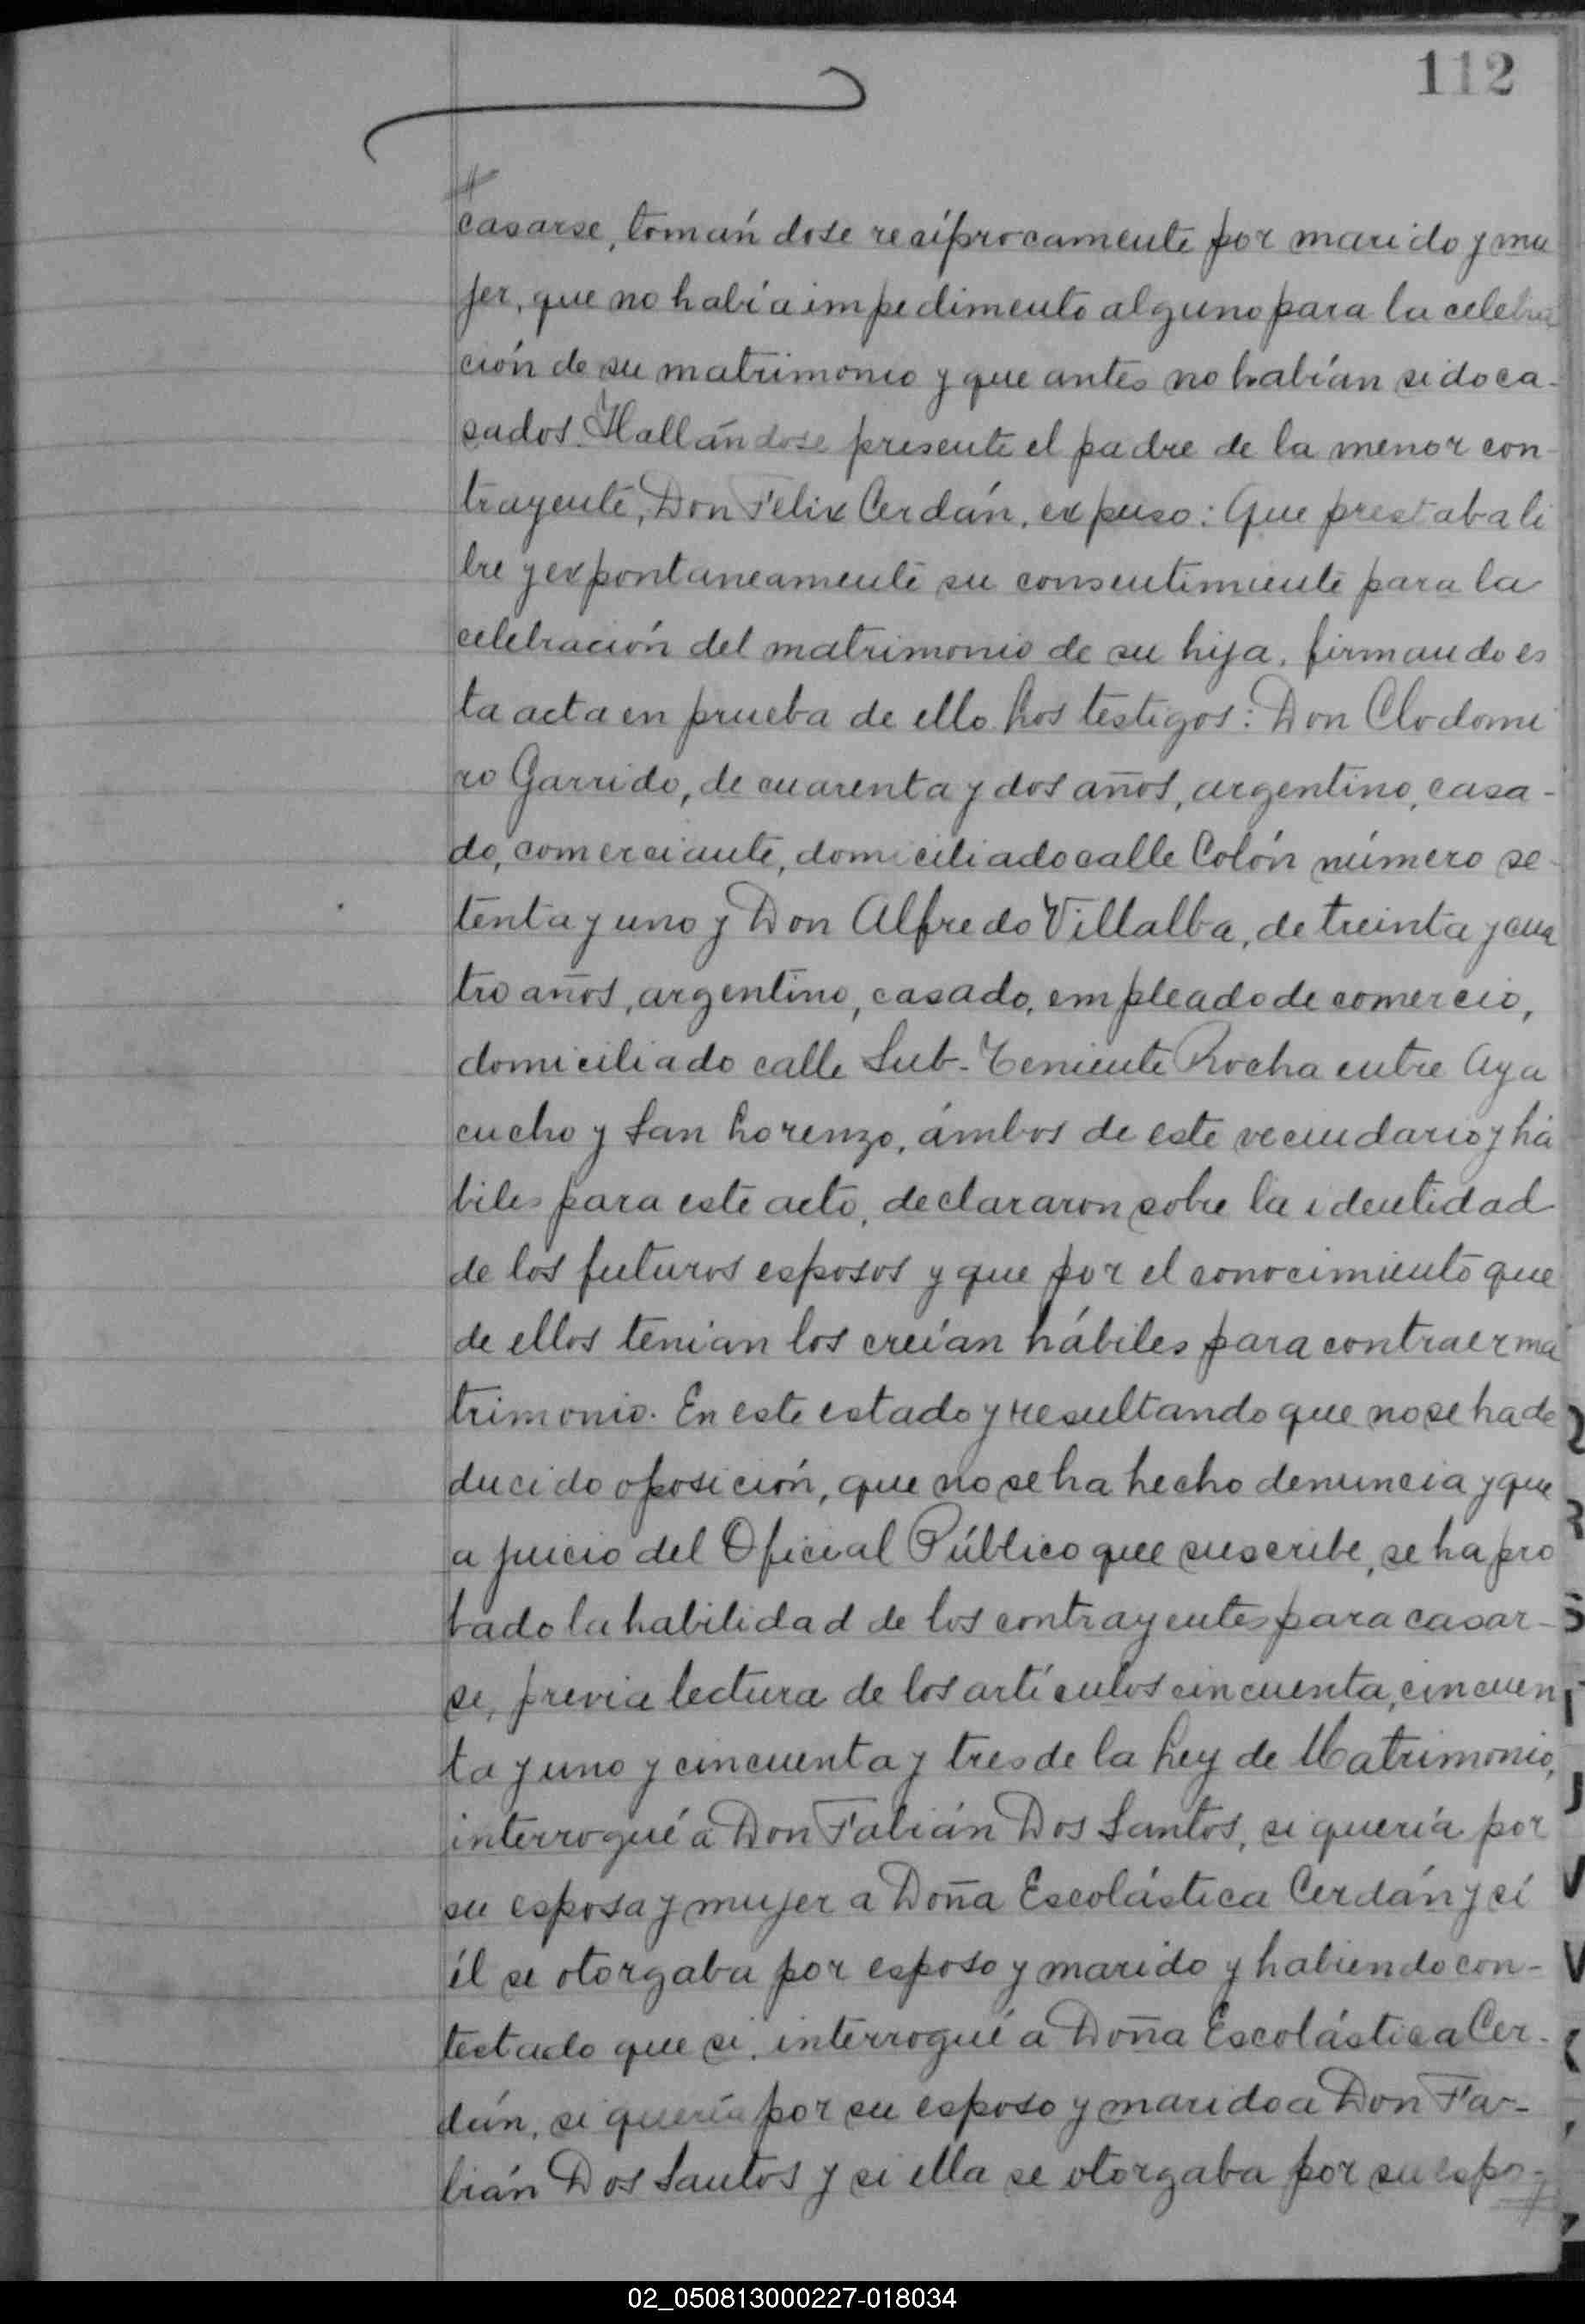 112
casarse, tomándose recíprocamente por marido y mu
jer, que no había impedimento alguno para la celebra
ción de su matrimonio y que antes no habían sido ca-
sados. Hallándose presente el padre de la menor con-
trayente, Don Felix Cerdán, expuso: Que prestaba li
bre y expontaneamente su consentimiente para la
celebración del matrimonio de su hija, firmando es
ta acta en prueba de ello. Los testigos: Don Clodomi
ro Garrido, de cuarenta y dos años, argentino, casa-
do, comerciante, domiciliado calle Colón número se-
tenta y uno y Don Alfredo Villalba, de treinta y cua
tro años, argentino, casado, empleado de comercio,
domiciliado calle Sub-Teniente Rocha entre Aya
cucho y San Lorenzo, ámbos de este vecindario y há
biles para este acto, declararon sobre la identidad
de los futuros esposos y que por el conocimiento que
de ellos tenían los creían hábiles para contraer ma
trimonio. En este estado y resultando que no se ha de
ducido oposición, que no se ha hecho denuncia y que
a juicio del Oficial Público que suscribe, se ha pro
bado la habilidad de los contrayentes para casar-
se, previa lectura de los artículos cincuenta, cincuen
ta y uno y cincuenta y tres de la Ley de Matrimonio,
interrogué a Don Fabián Dos Santos, si quería por
su esposa y mujer a Doña Escolástica Cerdán y sí
él se otorgaba por esposo y marido y habiendo con-
testado que si, interrogué a Doña Escolástica Cer-
dán, si quería por su esposo y marido a Don Fa-
bián Dos Santos y si ella se otorgaba por su espo-
02_050813000227-018034